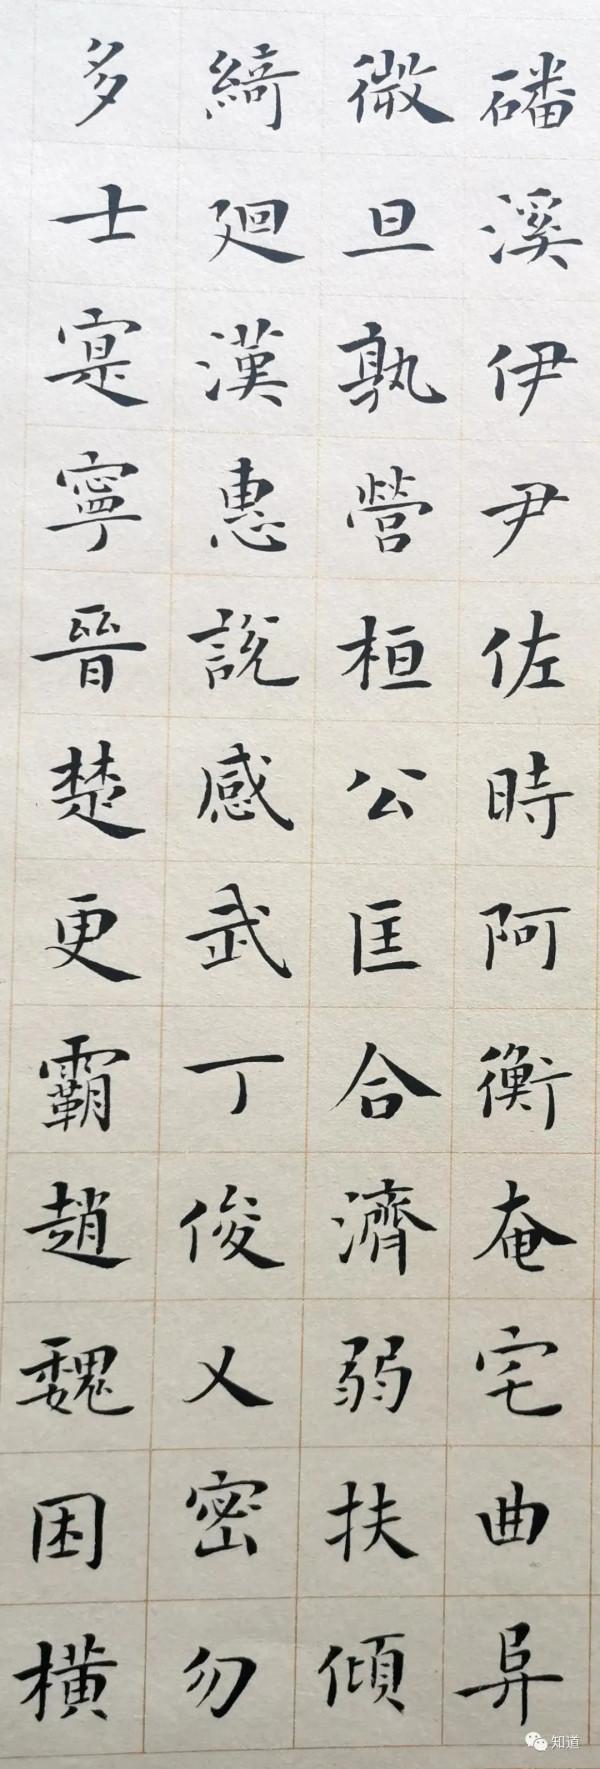 磻溪伊尹佐時阿衡奄宅曲阜
微旦孰營桓公匡合濟弱扶傾
綺迴漢惠說感武丁俊乂密勿
多士寔寧晉楚更霸趙魏困橫
知道